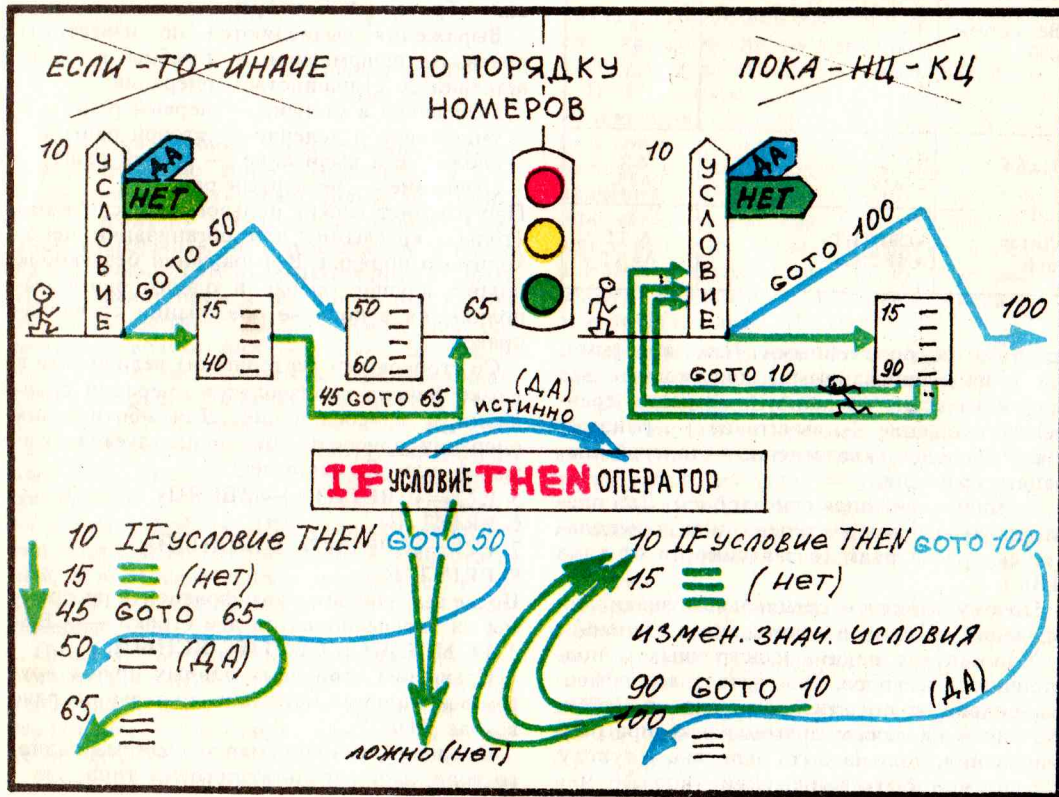 ЕСЛИ-ТО-ИНАЧЕ
ПО ПОРЯДКУ
НОМЕРОВ
ПОКА-НЦ-КЦ
10
УСЛОВИЕ
ДА
НЕТ
GOTO 50
15
40
50
60
65
45 GOTO 65
10
УСЛОВИЕ
ДА
НЕТ
GOTO 100
15
90
100
GOTO 10
(ДА)
ИСТИННО
IF УСЛОВИЕ THEN ОПЕРАТОР
10 IF УСЛОВИЕ THEN GOTO 50
15 (НЕТ)
45 GOTO 65
50 (ДА)
65
ЛОЖНО (НЕТ)
10 IF УСЛОВИЕ THEN GOTO 100
15 (НЕТ)
ИЗМЕН. ЗНАЧ. УСЛОВИЯ
90 GOTO 10
100
(ДА)